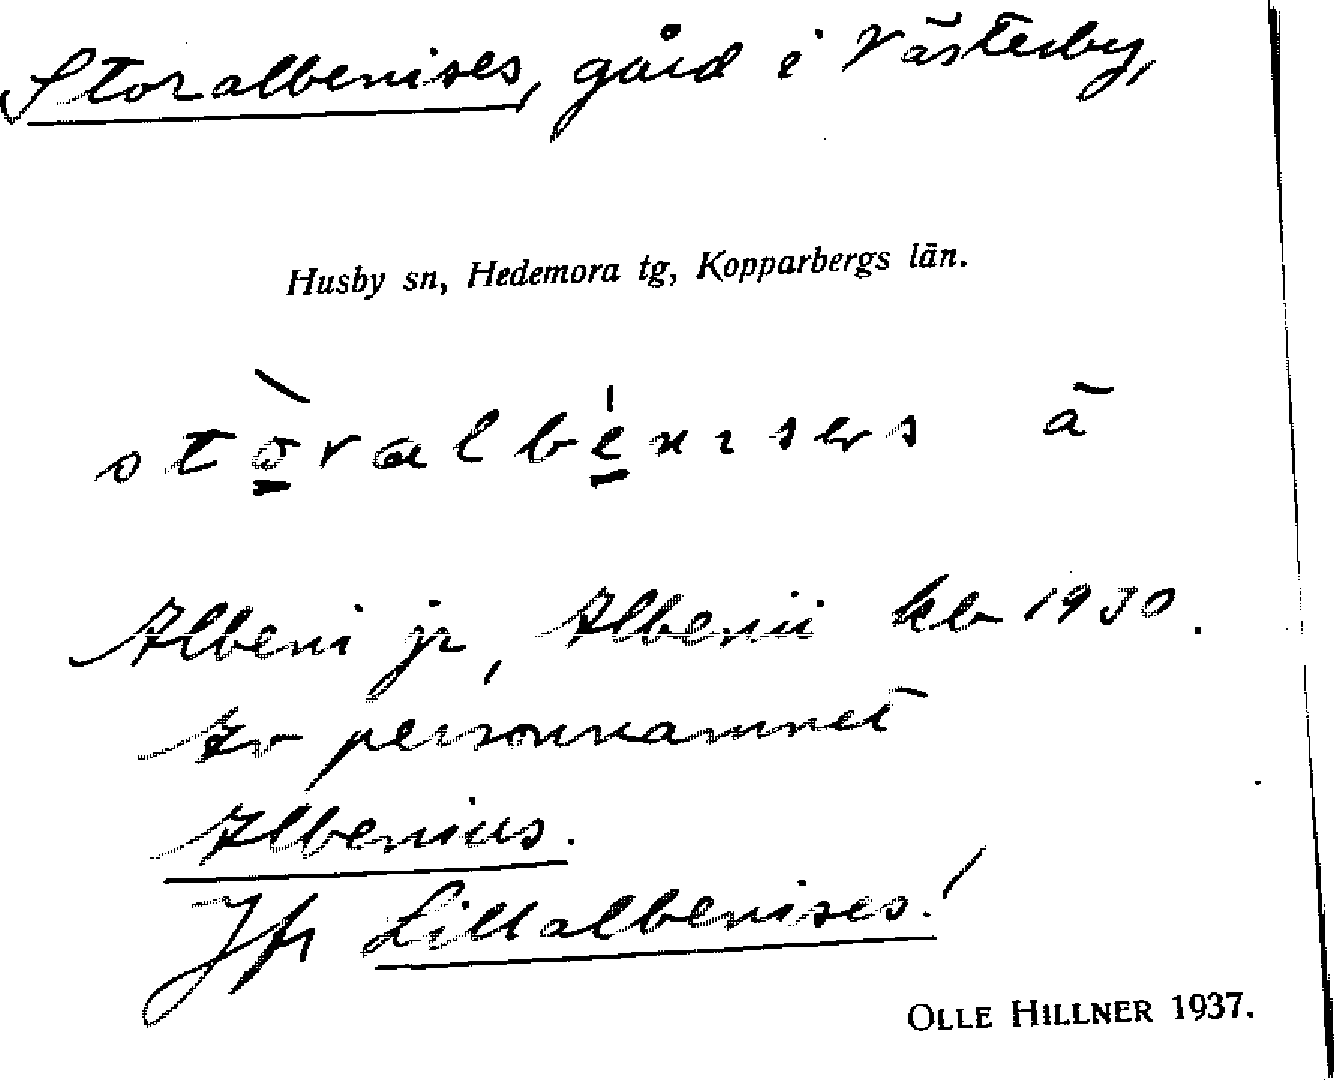 Storalbenises, gård i Västerby,
Husby sn, Hedemora tg, Kopparbergs län.
Albeni jr, Albenii kb 1930.
Av personnamnet
Albenius.
Jfr Lillalbenises!
OLLE HILLNER 1937.